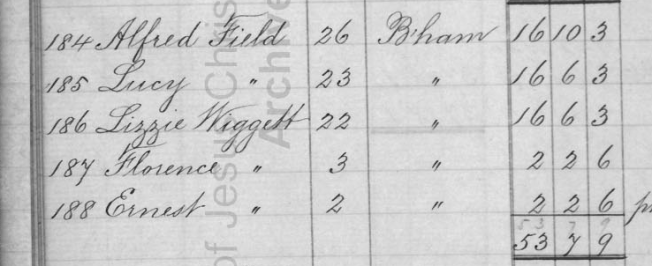 184 Alfred Field 26 B'ham 16 10 3
185 Lucy " 23 " 16 6 3
186 Lizzie Wiggett 22 " 16 6 3
187 Florence " 3 " 2 2 6
188 Ernest " 2 " 2 2 6
53 7 9
53 7 9
of Jesus Chris
Archive